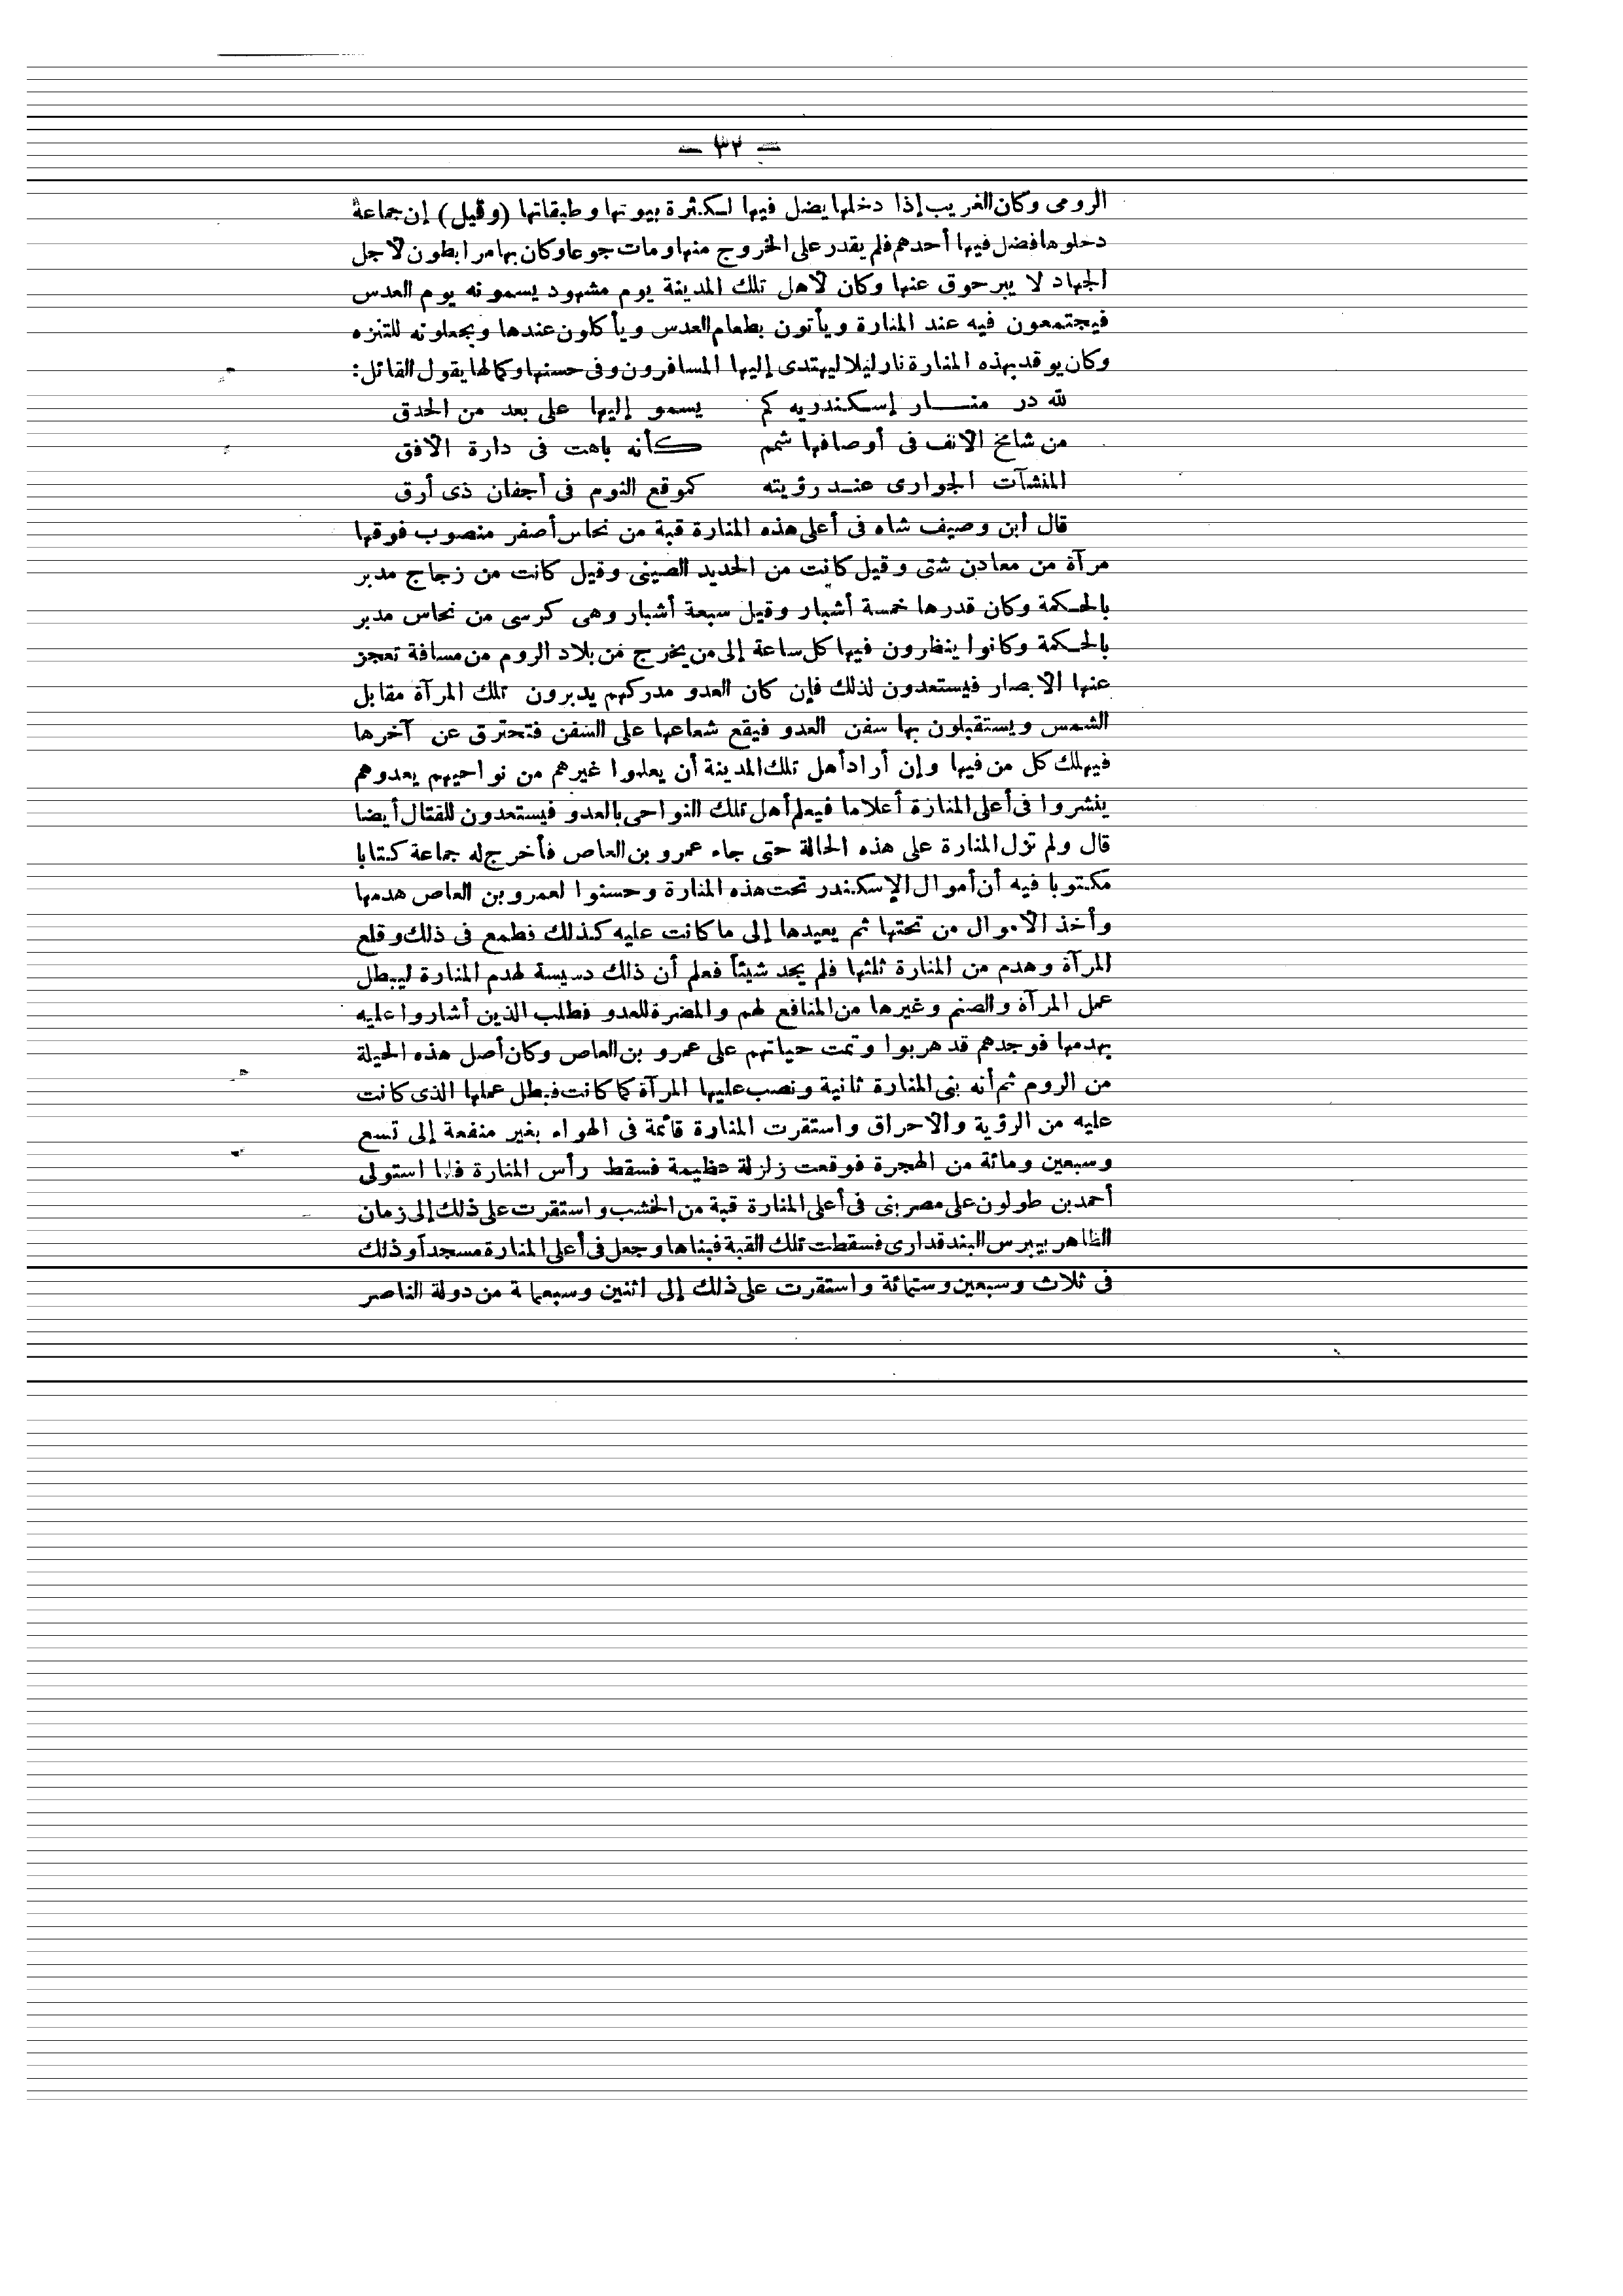 — ٣٢ —
الرومى وكان الغريب إذا دخلها يضل فيها لكثرة بيوتها وطبقاتها (وقيل) إن جماعة
دخلوها فضل فيها أحدهم فلم يقدر على الخروج منها ومات جوعا وكان بها مرابطون لاجل
الجهاد لا يبرحوق عنها وكان لاهل تلك المدينة يوم مشهود يسمونه يوم العدس
فيجتمعون فيه عند المنارة ويأتون بطعام العدس ويأكلون عندها ويجعلونه للتنزه
وكان يوقد بهذه المنارة نار ليلا ليهتدى إليها المسافرون وفى حسنها وكمالها يقول القائل:
لله در منار إسكندريه كم يسمو إليها على بعد من الحدق
من شامخ الانف فى أوصافها شمم كأنه باهت فى دارة الافق
المنشآت الجوارى عند رؤيته كموقع النوم فى أجفان ذى أرق
قال ابن وصيف شاه فى أعلى هذه المنارة قبة من نحاس أصفر منصوب فوقها
مرآة من معادن شتى وقيل كانت من الحديد الصينى وقيل كانت من زجاج مدبر
بالحكمة وكان قدرها خمسة أشبار وقيل سبعة أشبار وهى كرسى من نحاس مدبر
بالحكمة وكانوا ينظرون فيها كل ساعة إلى من يخرج من بلاد الروم من مسافة تعجز
عنها الابصار فيستعدون لذلك فإن كان العدو مدركهم يدبرون تلك المرآة مقابل
الشمس ويستقبلون بها سفن العدو فيقع شعاعها على السفن فتحترق عن آخرها
فيهلك كل من فيها وإن أراد أهل تلك المدينة أن يعلموا غيرهم من نواحيهم يعدوهم
ينشروا فى أعلى المنارة أعلاما فيعلم أهل تلك النواحى بالعدو فيستعدون للقتال أيضا
قال ولم تزل المنارة على هذه الحالة حتى جاء عمرو بن العاص فأخرج له جماعة كتابا
مكتوبا فيه أن أموال الإسكندر تحت هذه المنارة وحسنوا لعمرو بن العاص هدمها
وأخذ الاموال من تحتها ثم يعيدها إلى ما كانت عليه كذلك فطمع فى ذلك وقلع
المرآة وهدم من المنارة ثلثها فلم يجد شيئاً فعلم أن ذلك دسيسة لهدم المنارة ليبطل
عمل المرآة والصنم وغيرها من المنافع لهم والمضرة للعدو فطلب الذين أشاروا عليه
بهدمها فوجدهم قد هربوا وتمت حياتهم على عمرو بن العاص وكان أصل هذه الحيلة
من الروم ثم أنه بنى المنارة ثانية ونصب عليها المرآة كما كانت فبطل عملها الذى كانت
عليه من الرؤية والاحراق واستقرت المنارة قائمة فى الهواء بغير منفعة إلى تسع
وسبعين ومائة من الهجرة فوقعت زلزلة عظيمة فسقط رأس المنارة فلما استولى
أحمد بن طولون على مصر بنى فى أعلى المنارة قبة من الخشب واستقرت على ذلك إلى زمان
الظاهر بيبرس البندقدارى فسقطت تلك القبة فبناها وجعل فى أعلى المنارة مسجداً وذلك
فى ثلاث وسبعين وستمائة واستقرت على ذلك إلى اثنين وسبعمائة من دولة الناصر